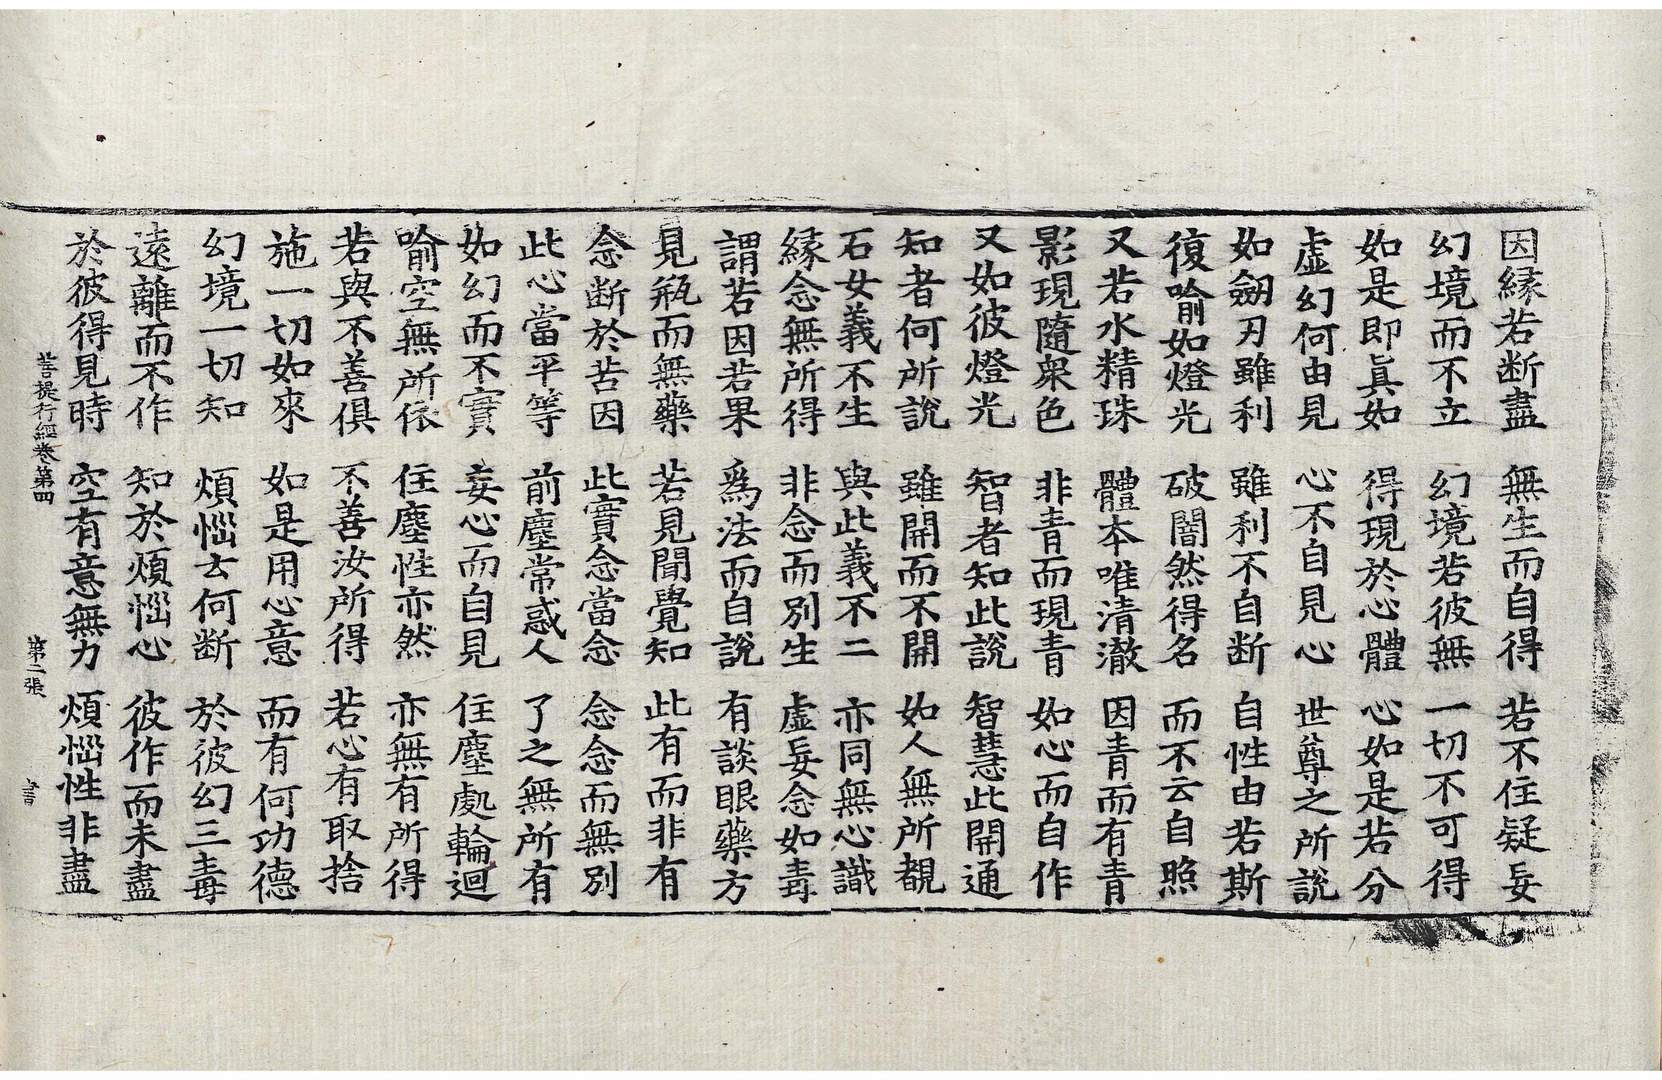 因緣若断盡　無生而自得　若不住疑妄
幻境而不立　幻境若彼無　一切不可得
如是即眞如　得現於心體　心如是若分
虛幻何由見　心不自見心　世尊之所說
如劒刃雖利　雖利不自断　自性由若斯
復喻如燈光　破闇然得名　而不云自照
又若水精珠　體本唯清澈　因青而有青
影現隨衆色　非青而現青　如心而自作
又如彼燈光　智者知此說　智慧此開通
知者何所說　雖開而不開　如人無所覩
石女義不生　與此義不二　亦同無心識
緣念無所得　非念而別生　虛妄念如毒
謂若因若果　爲法而自說　有談眼藥方
見瓶而無藥　若見聞覺知　此有而非有
念断於苦因　此實念當念　念念而無別
此心當平等　前塵常惑人　了之無所有
如幻而不實　妄心而自見　住塵處輪迴
喻空無所依　住塵性亦然　亦無有所得
若與不善俱　不善汝所得　若心有取捨
施一切如來　如是用心意　而有何功德
幻境一切知　煩惱云何断　於彼幻三毒
遠離而不作　知於煩惱心　彼作而未盡
於彼得見時　空有意無力　煩惱性非盡
菩提行經卷第四　第二張　書